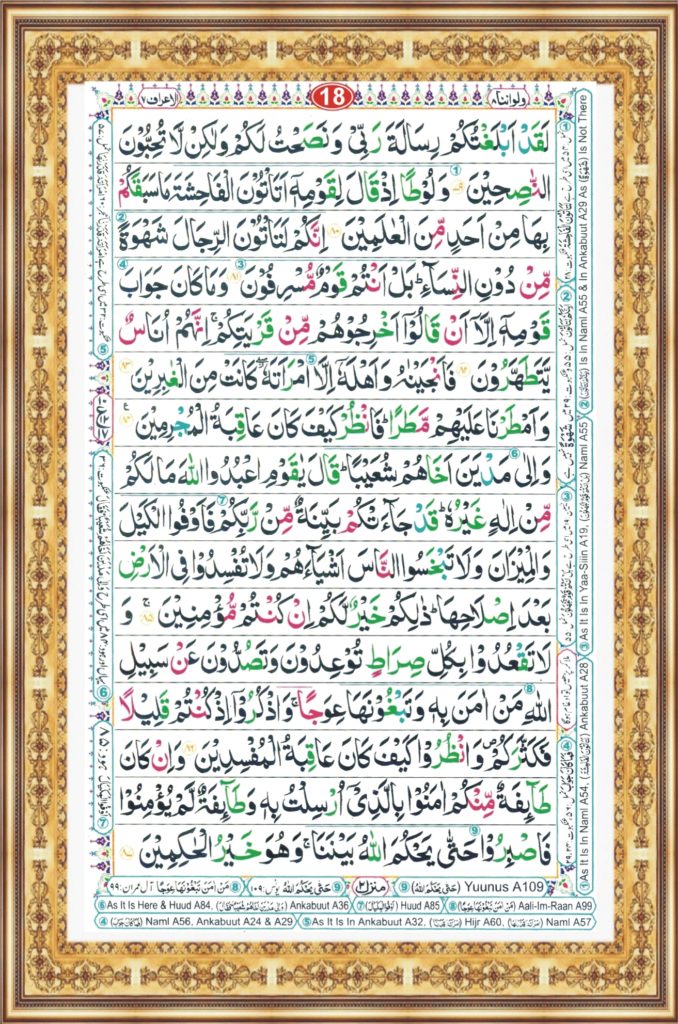 ولواننا ٨
18
الاعراف ٧
لَقَدۡ اَبۡلَغۡتُكُمۡ رِسَالَةَ رَبِّىۡ وَنَصَحۡتُ لَكُمۡ وَلٰكِنۡ لَّا تُحِبُّوۡنَ
النّٰصِحِيۡنَ وَلُوۡطًا اِذۡ قَالَ لِقَوۡمِهٖۤ اَتَاۡتُوۡنَ الۡفَاحِشَةَ مَا سَبَقَكُمۡ
بِهَا مِنۡ اَحَدٍ مِّنَ الۡعٰلَمِيۡنَ ٨٠ اِنَّكُمۡ لَتَاۡتُوۡنَ الرِّجَالَ شَهۡوَةً
مِّنۡ دُوۡنِ النِّسَآءِ ؕ بَلۡ اَنۡتُمۡ قَوۡمٌ مُّسۡرِفُوۡنَ ٨١ وَمَا كَانَ جَوَابَ
قَوۡمِهٖۤ اِلَّاۤ اَنۡ قَالُوۡۤا اَخۡرِجُوۡهُمۡ مِّنۡ قَرۡيَتِكُمۡ ۚ اِنَّهُمۡ اُنَاسٌ
يَّتَطَهَّرُوۡنَ ٨٢ فَاَنۡجَيۡنٰهُ وَاَهۡلَهٗۤ اِلَّا امۡرَاَتَهٗ ۖ كَانَتۡ مِنَ الۡغٰبِرِيۡنَ ٨٣
وَاَمۡطَرۡنَا عَلَيۡهِمۡ مَّطَرًا ؕ فَانْظُرۡ كَيۡفَ كَانَ عَاقِبَةُ الۡمُجۡرِمِيۡنَ ٨٤
وَاِلٰى مَدۡيَنَ اَخَاهُمۡ شُعَيۡبًا ؕ قَالَ يٰقَوۡمِ اعۡبُدُوا اللّٰهَ مَا لَكُمۡ
مِّنۡ اِلٰهٍ غَيۡرُهٗ ؕ قَدۡ جَآءَتۡكُمۡ بَيِّنَةٌ مِّنۡ رَّبِّكُمۡ فَاَوۡفُوا الۡكَيۡلَ
وَالۡمِيۡزَانَ وَلَا تَبۡخَسُوا النَّاسَ اَشۡيَآءَهُمۡ وَلَا تُفۡسِدُوۡا فِى الۡاَرۡضِ
بَعۡدَ اِصۡلَاحِهَا ؕ ذٰلِكُمۡ خَيۡرٌ لَّكُمۡ اِنۡ كُنۡتُمۡ مُّؤۡمِنِيۡنَ ۚ ٨٥ وَ
لَا تَقۡعُدُوۡا بِكُلِّ صِرَاطٍ تُوۡعِدُوۡنَ وَتَصُدُّوۡنَ عَنۡ سَبِيۡلِ
اللّٰهِ مَنۡ اٰمَنَ بِهٖ وَتَبۡغُوۡنَهَا عِوَجًا ۚ وَاذۡكُرُوۡۤا اِذۡ كُنۡتُمۡ قَلِيۡلًا
فَكَثَّرَكُمۡ وَانْظُرُوۡا كَيۡفَ كَانَ عَاقِبَةُ الۡمُفۡسِدِيۡنَ ٨٦ وَاِنۡ كَانَ
طَآئِفَةٌ مِّنۡكُمۡ اٰمَنُوۡا بِالَّذِىۡۤ اُرۡسِلۡتُ بِهٖ وَطَآئِفَةٌ لَّمۡ يُؤۡمِنُوۡا
فَاصۡبِرُوۡا حَتّٰى يَحۡكُمَ اللّٰهُ بَيۡنَنَا ۚ وَهُوَ خَيۡرُ الۡحٰكِمِيۡنَ ٨٧
⑧ مَنۡ اٰمَنَ تَبۡغُوۡنَهَا عِوَجًا آل عمران: ٩٩ ⑨ حَتّٰى يَحۡكُمَ اللّٰهُ يونس: ١٠٩ منزل ٢ ⑨ (حَتّٰى يَحۡكُمَ اللّٰهُ) Yuunus A109
⑥ As It Is Here & Huud A84, Ankabuut A36 ⑦ Huud A85 ⑧ Aali-Im-Raan A99
④ Naml A56, Ankabuut A24 & A29 ⑤ As It Is In Ankabuut A32, Hijr A60, Naml A57
① As It Is In Naml A54, Ankabuut A28 ③ As It Is In Yaa-Siin A19, Naml A55 ② Is In Naml A55 & In Ankabuut A29 As (شَهۡوَةً) Is Not There